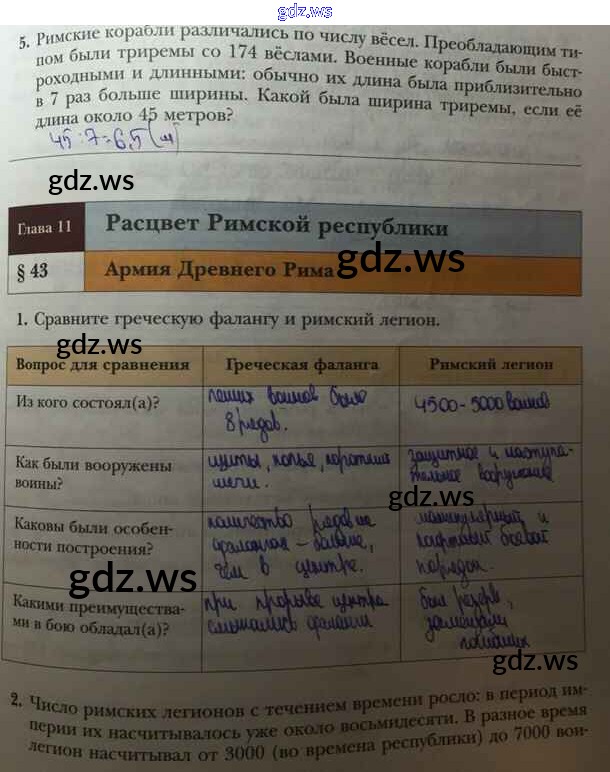 gdz.ws
5. Римские корабли различались по числу вёсел. Преобладающим ти-
пом были триремы со 174 вёслами. Военные корабли были быст-
роходными и длинными: обычно их длина была приблизительно
в 7 раз больше ширины. Какой была ширина триремы, если её
длина около 45 метров?
45 : 7 = 6,5 (м)
gdz.ws
Глава 11
Расцвет Римской республики
§ 43
Армия Древнего Рима
gdz.ws
1. Сравните греческую фалангу и римский легион.
gdz.ws
Вопрос для сравнения
Греческая фаланга
Римский легион
Из кого состоял(а)?
пеших воинов было
8 рядов.
4500-5000 воинов
Как были вооружены
воины?
щиты, копье, короткие
мечи.
защитное и наступа-
тельное вооружение
gdz.ws
Каковы были особен-
ности построения?
количество рядов на
фалангах - больше,
чем в центре.
манипулярный и
когортный боевой
порядок.
gdz.ws
Какими преимущества-
ми в бою обладал(а)?
при прорыве центра
смыкались фаланги
был резерв,
заменяли
погибших
gdz.ws
2. Число римских легионов с течением времени росло: в период им-
перии их насчитывалось уже около восьмидесяти. В разное время
легион насчитывал от 3000 (во времена республики) до 7000 вои-